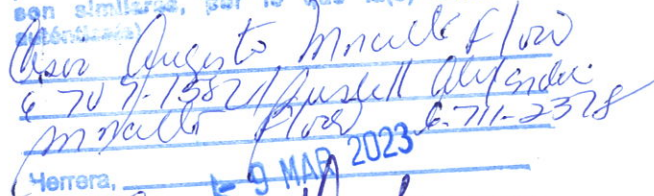 son similares, por lo que la(s)
auténtica(s)
Cesar Augusto Moreno Flores
6-707-1582 / Russell Alexander
Moreno Flores 6-711-2378
Herrera, 9 MAR 2023